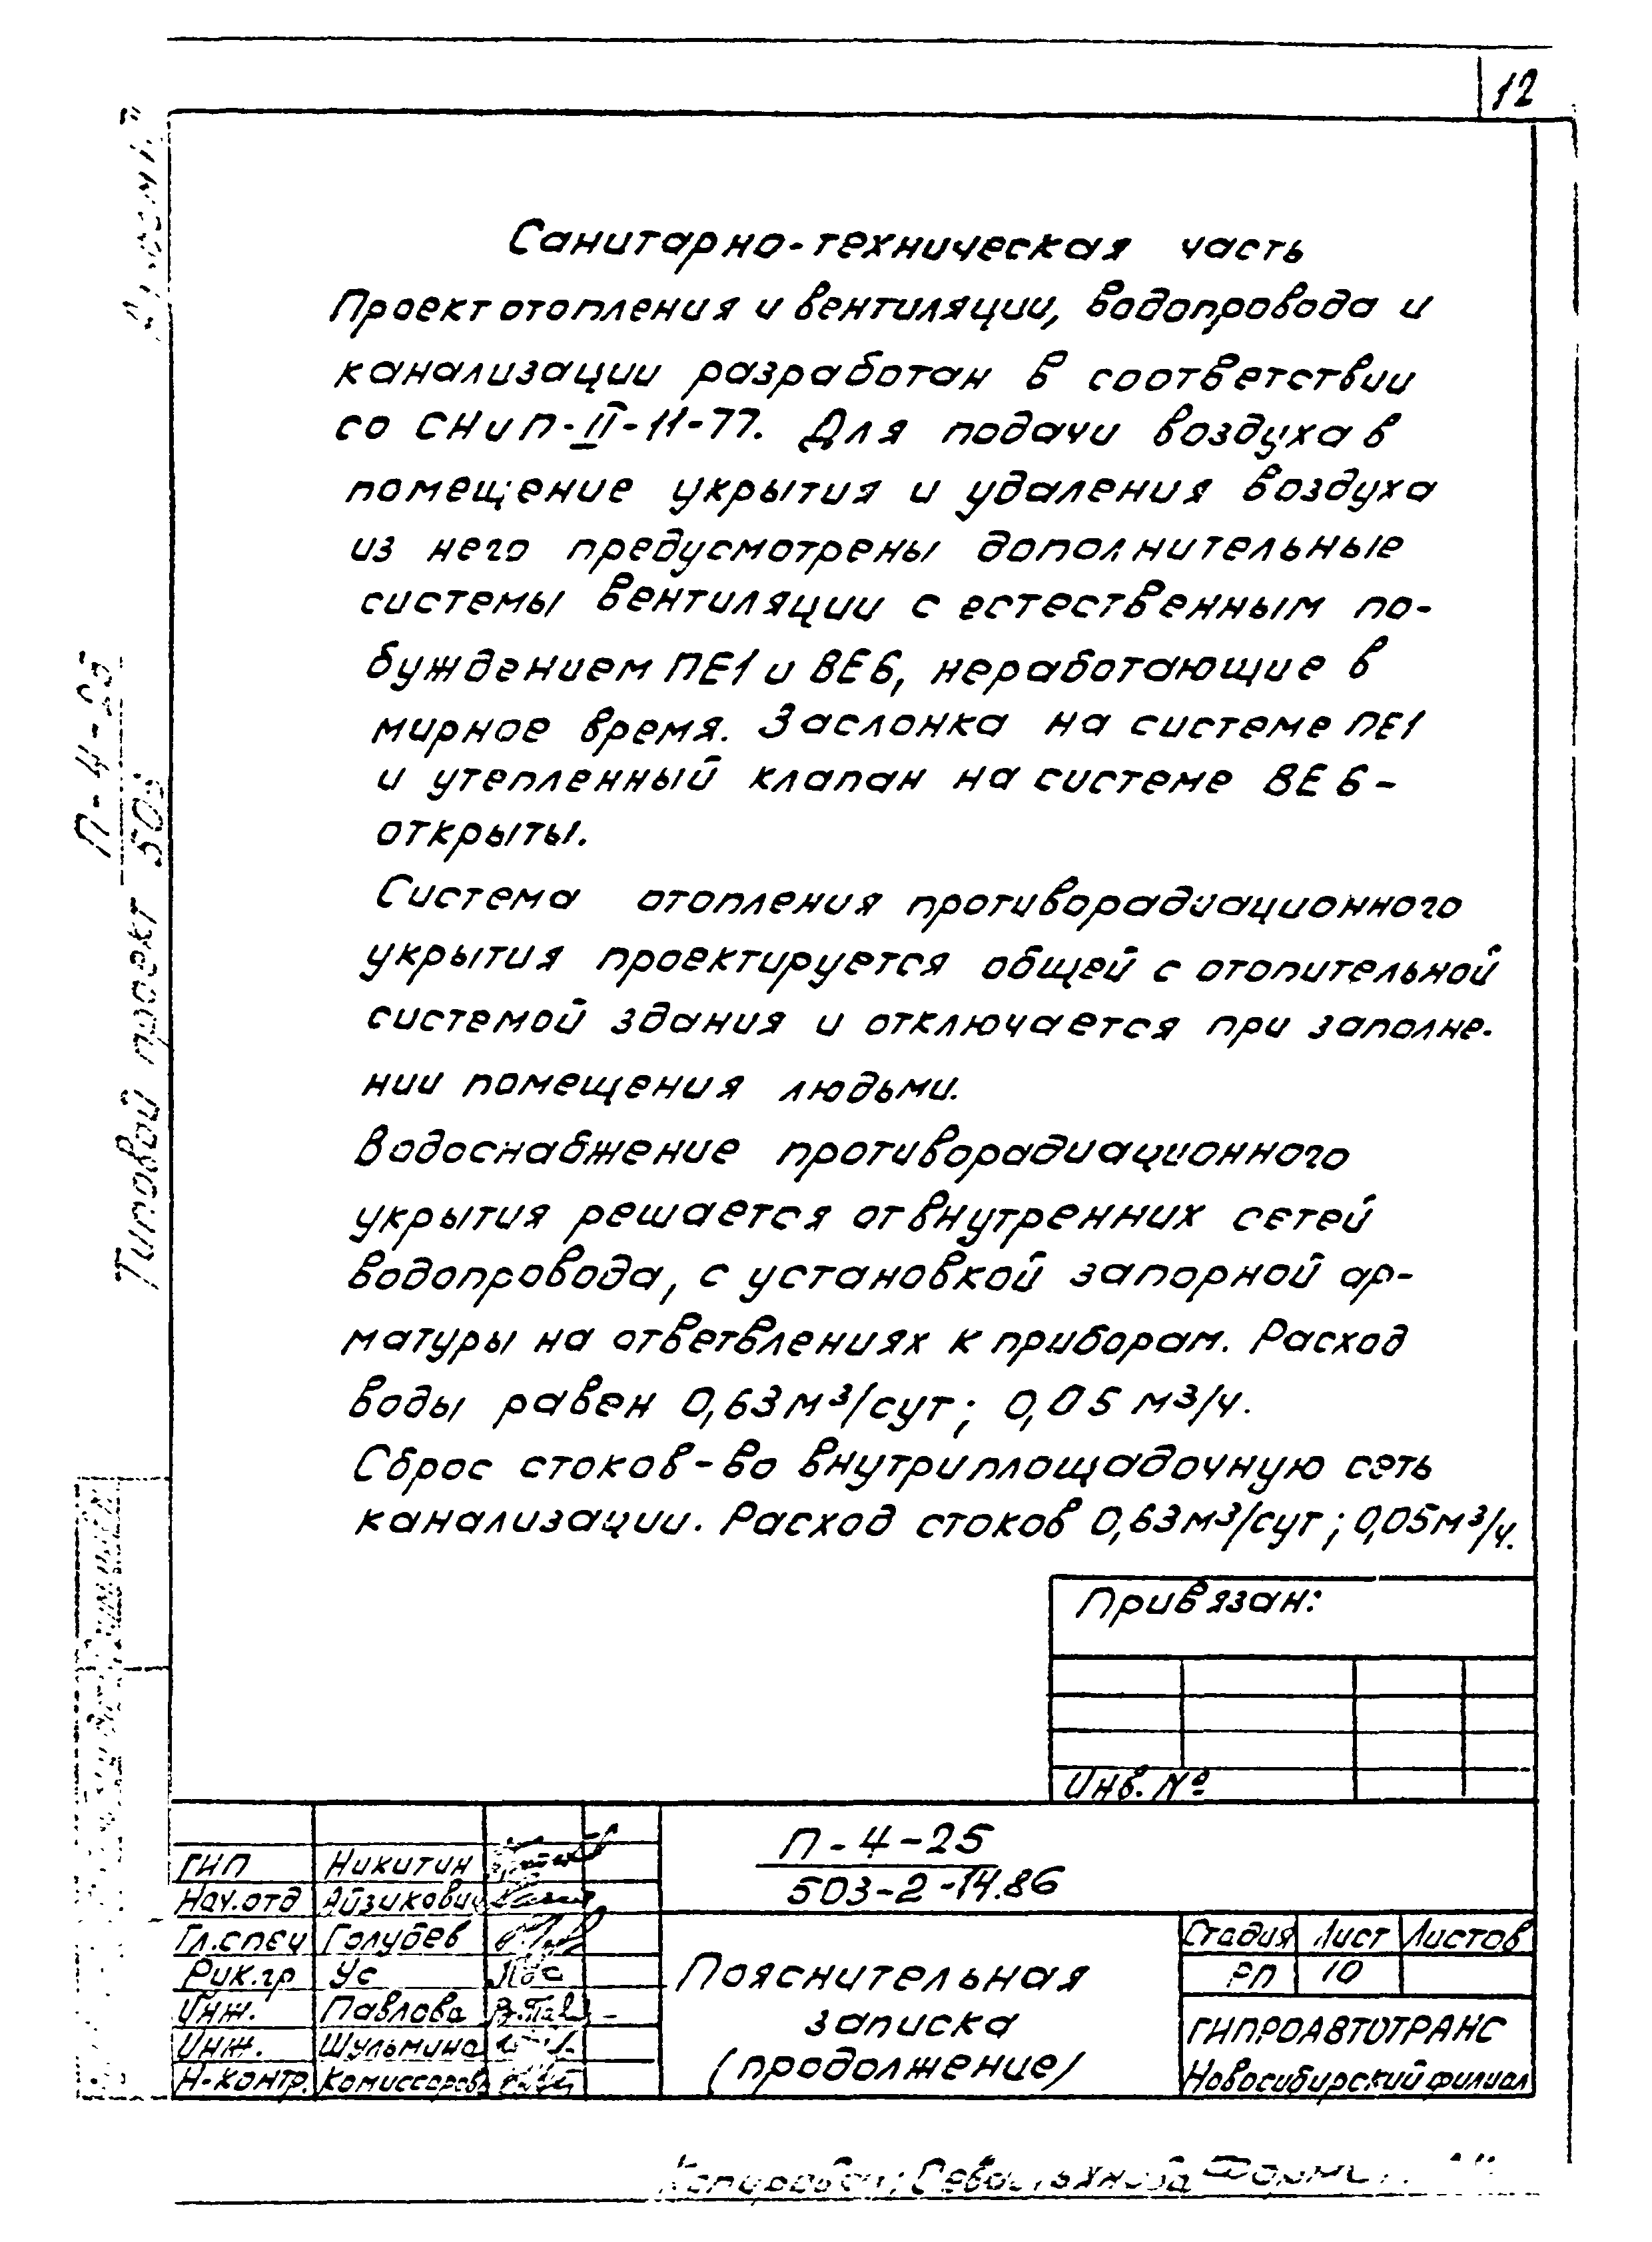 12
Санитарно-техническая часть
Проект отопления и вентиляции, водопровода и
канализации разработан в соответствии
со СНиП-II-11-77. Для подачи воздуха в
помещение укрытия и удаления воздуха
из него предусмотрены дополнительные
системы вентиляции с естественным по-
буждением ПЕ1 и ВЕ6, неработающие в
мирное время. Заслонка на системе ПЕ1
и утепленный клапан на системе ВЕ6 -
открыты.
Система отопления противорадиационного
укрытия проектируется общей с отопительной
системой здания и отключается при заполне-
нии помещения людьми.
Водоснабжение противорадиационного
укрытия решается от внутренних сетей
водопровода, с установкой запорной ар-
матуры на ответвлениях к приборам. Расход
воды равен 0,63 м³/сут; 0,05 м³/ч.
Сброс стоков - во внутриплощадочную сеть
канализации. Расход стоков 0,63 м³/сут; 0,05 м³/ч.
Типовой проект
П-4-25
503
Привязан:
Инв. №
ГИП Никитин
Нач.отд Айзикович
Гл.спец Голубев
Рук.гр Ус
Инж. Павлова
Инж. Шульмина
Н-контр. Комиссарова
П-4-25
503-2-14.86
Пояснительная
записка
(продолжение)
Стадия Лист Листов
РП 10
ГИПРОАВТОТРАНС
Новосибирский филиал
Копировал: Севостьянова